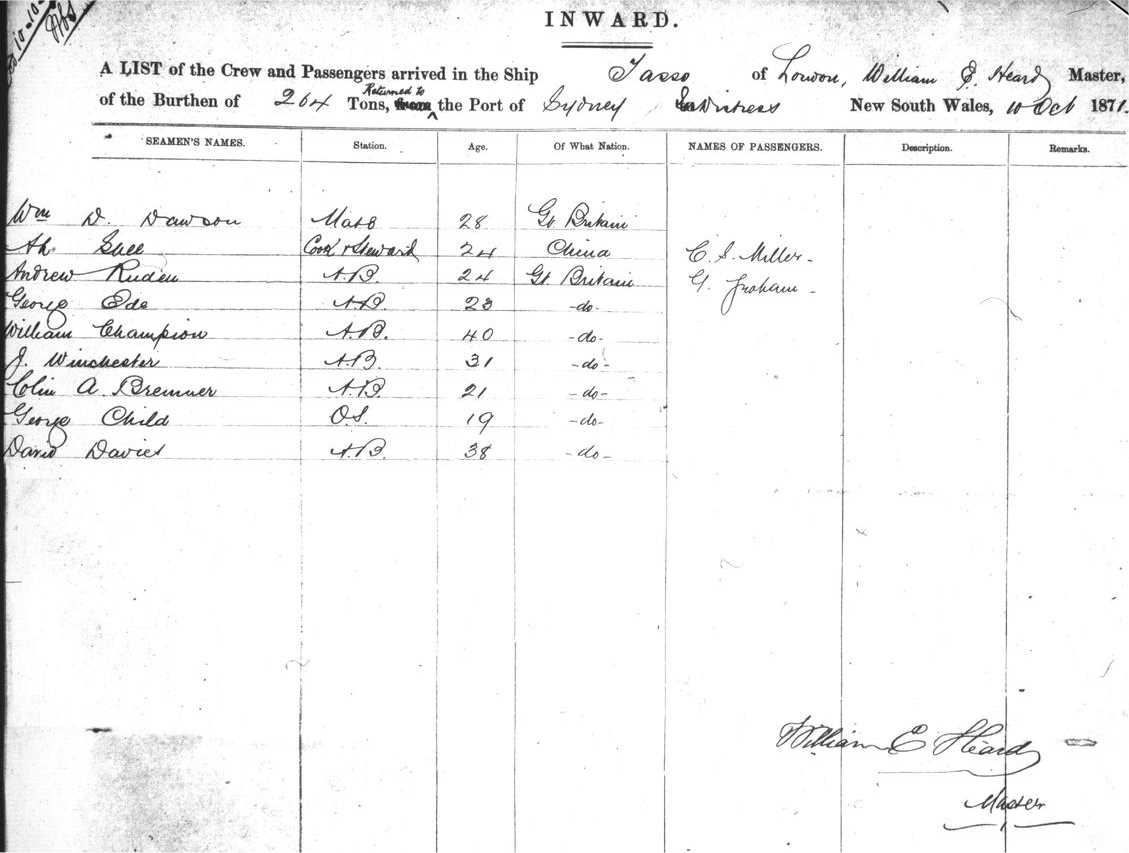 10-10-
INWARD.
A LIST of the Crew and Passengers arrived in the Ship Tasso of London, William E. Heard Master,
of the Burthen of 264 Tons, Returned to the Port of Sydney In Distress New South Wales, 10 Oct 1871.
SEAMEN'S NAMES. Station. Age. Of What Nation. NAMES OF PASSENGERS. Description. Remarks.
Wm D. Dawson Mate 28 Gt. Britain
Ah Cook & Steward 24 China C. S. Miller-
Andrew Ruden A.B. 24 Gt. Britain G. Graham -
George Ede A.B. 23 -do-
William Champion A.B. 40 -do-
J. Winchester A.B. 31 -do-
Colin A. Bremner A.B. 21 -do-
George Child O.S. 19 -do-
David Davies A.B. 38 -do-
William E Heard
Master